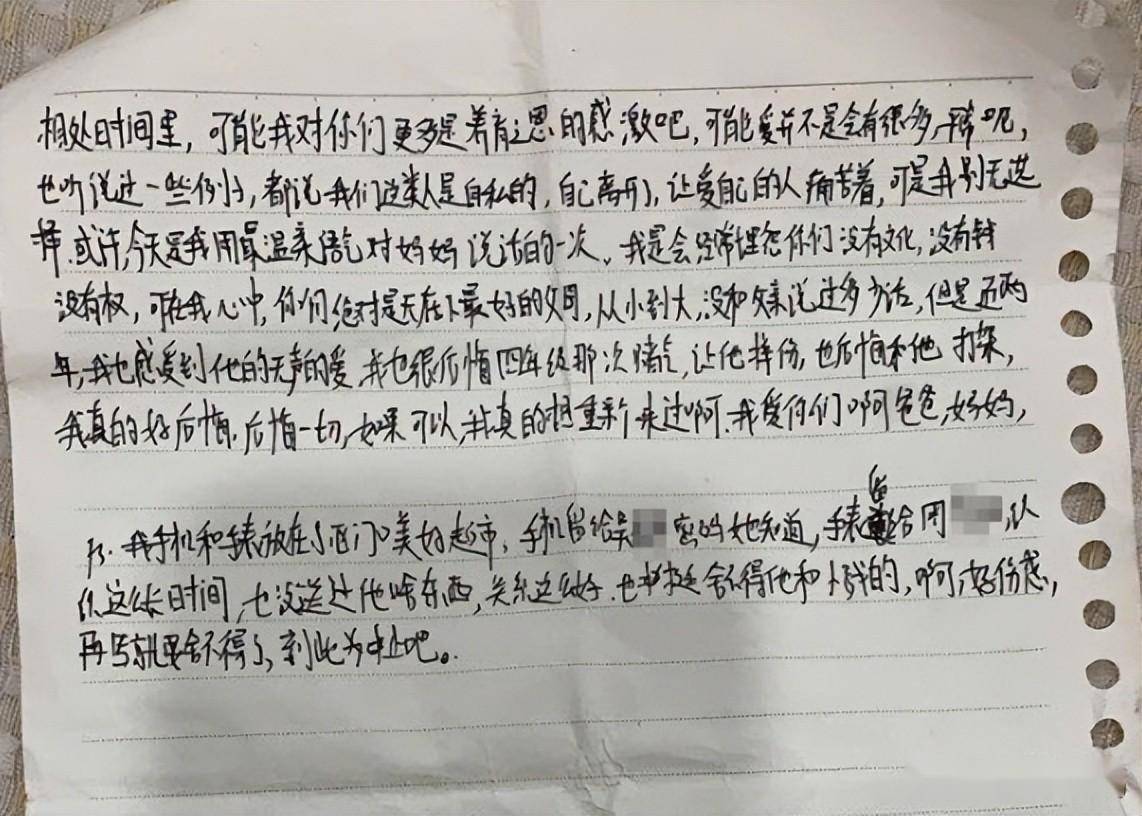 相处时间里，可能我对你们更多是养育之恩的感激吧，可能爱并不是会有很多，唉呢，
也听说过一些例子，都说我们这类人是自私的，自己离开了，让爱自己的人痛苦着，可是我别无选
择.或许,今天是我用最温柔语气对妈妈说话的一次。我是会经常埋怨你们没有文化,没有钱
没有权，可在我心中,你们绝对是天底下最好的父母,从小到大,没和父亲说过多少话，但是近两
年,我也感受到他的无声的爱.我也很后悔四年级那次赌气,让他摔伤,也后悔和他打架,
我真的好后悔.后悔一切,如果可以,我真的想重新来过啊.我爱你们啊爸爸,妈妈,
Ps.我手机和手表放在小区门口美好超市,手机留给吴 密码她知道,手表留给周 ,认
识这么长时间,也没送过他啥东西,关系这么好.也挺舍不得他和 的,啊,好伤感,
再写就要舍不得了,到此为止吧。